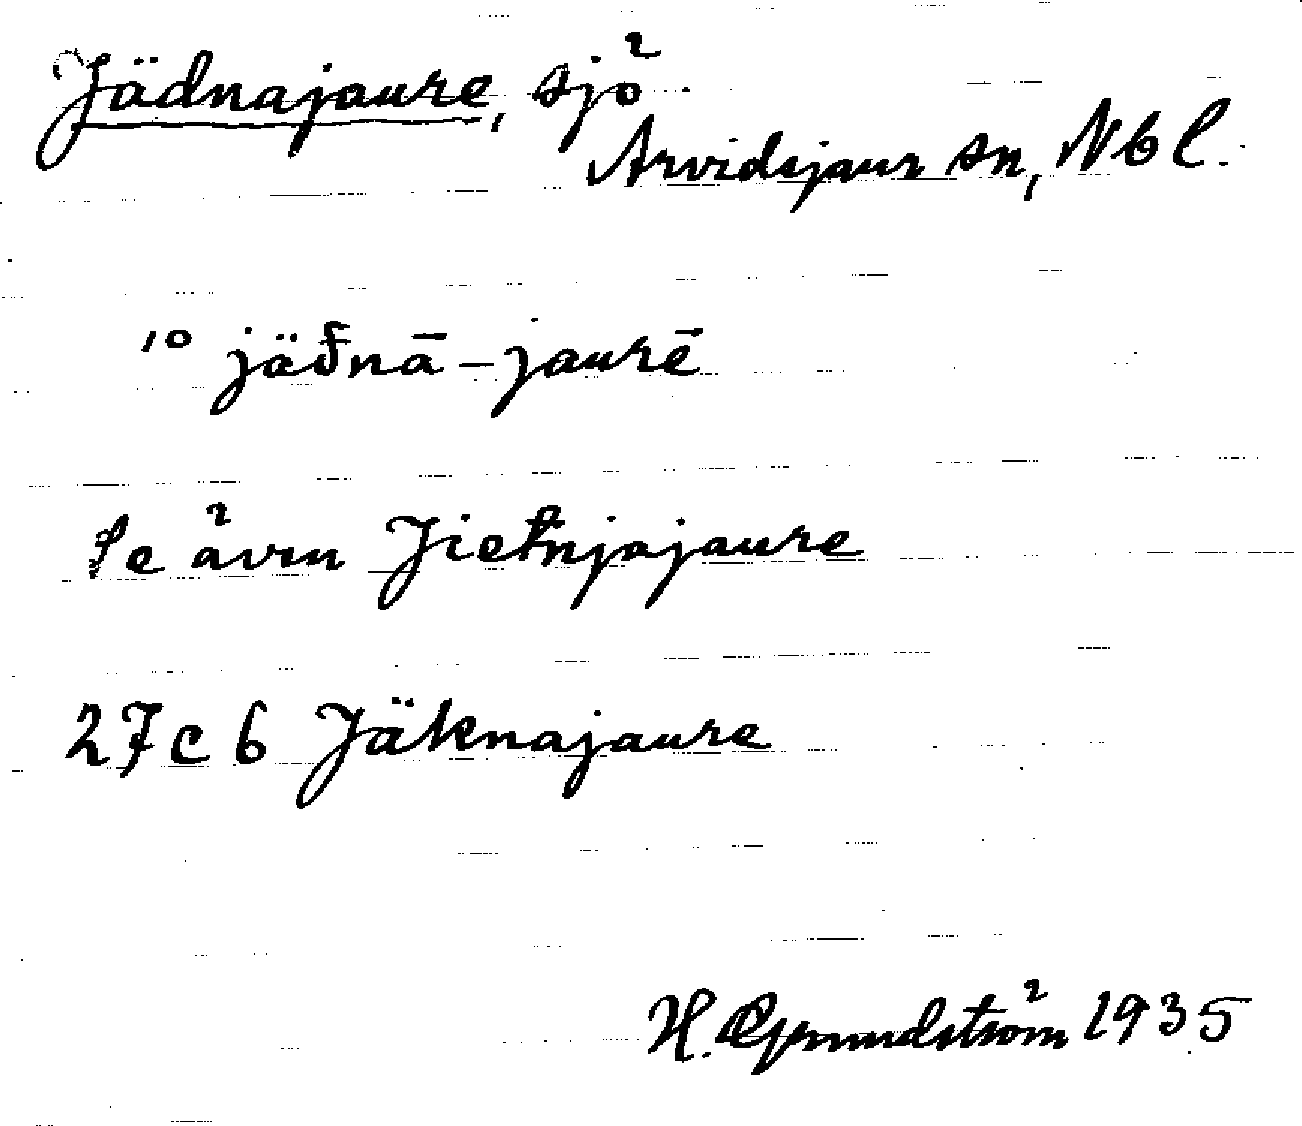 Jädnajaure, sjö
Arvidsjaur sn, Nbl.
10 jäđnā-jaurē
Se även Jietnjajaure
27 c 6 Jäknajaure
H. Grundström 1935